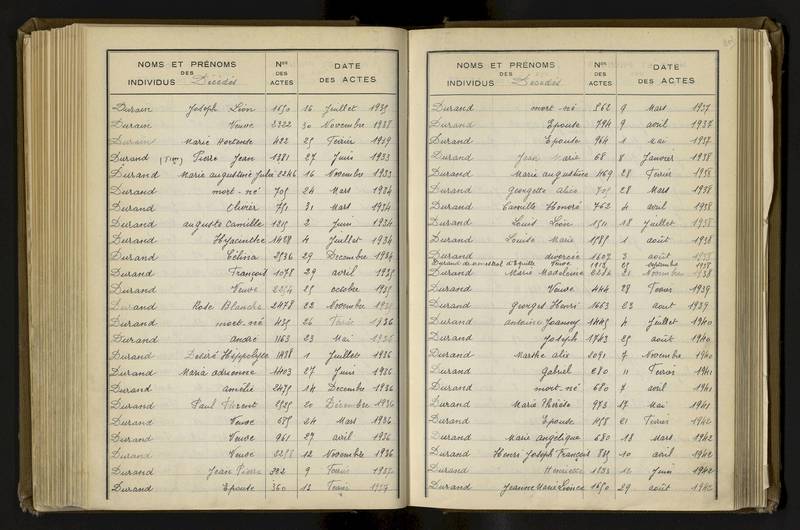 NOMS ET PRÉNOMS DES INDIVIDUS Décédés Nos DES ACTES DATE DES ACTES
Durain Joseph Léon 1650 16 Juillet 1935
Durain Veuve 2322 30 Novembre 1938
Durain Marie Hortense 422 25 Février 1939
Durand (Tim) Pierre Jean 1381 27 Juin 1933
Durand Marie augustine Julie 2246 16 Novembre 1933
Durand mort-né 705 24 Mars 1934
Durand Olivier 751 31 Mars 1934
Durand auguste Camille 1215 2 Juin 1934
Durand Hyacinthe 1428 4 Juillet 1934
Durand Célina 2536 29 Décembre 1934
Durand François 1078 29 avril 1935
Durand Veuve 2254 25 octobre 1935
Durand Rose Blanche 2478 22 Novembre 1935
Durand mort-né 435 26 Février 1936
Durand andré 1163 23 Mai 1936
Durand Désiré Hippolyte 1438 1 Juillet 1936
Durand Marie adrienne 1403 27 Juin 1936
Durand amélie 2475 14 Décembre 1936
Durand Paul Vincent 2525 20 Décembre 1936
Durand Veuve 685 24 Mars 1936
Durand Veuve 961 27 avril 1936
Durand Veuve 2258 12 Novembre 1936
Durand Jean Pierre 322 9 Février 1937
Durand Epouse 360 13 Février 1937
NOMS ET PRÉNOMS DES INDIVIDUS Décédés Nos DES ACTES DATE DES ACTES
Durand mort-né 562 9 Mars 1937
Durand Epouse 794 9 avril 1937
Durand Epouse 964 1 mai 1937
Durand Jean Marie 68 8 Janvier 1938
Durand Marie augustine 469 28 Février 1938
Durand georgette alice 705 28 Mars 1938
Durand Camille Honoré 762 4 avril 1938
Durand Louis Léon 1511 18 Juillet 1938
Durand Louise Marie 1585 1 août 1938
Durand divorcée 1607 3 août 1938
Durand Veuve septembre 1938
Durand Marie Madeleine 2284 21 Novembre 1938
Durand Veuve 444 28 Février 1939
Durand georges Henri 1663 23 aout 1939
Durand antoine Joanny 1445 4 Juillet 1940
Durand Joseph 1743 25 août 1940
Durand Marthe alix 2091 7 Novembre 1940
Durand Gabriel 280 11 Février 1941
Durand mort-né 680 7 avril 1941
Durand Marie Thérèse 973 17 Mai 1941
Durand Epouse 458 21 Février 1942
Durand Marie angélique 680 18 Mars 1942
Durand Henri Joseph François 885 10 avril 1942
Durand Henriette 1233 12 Juin 1942
Durand Jeanne Marie 1650 29 août 1942